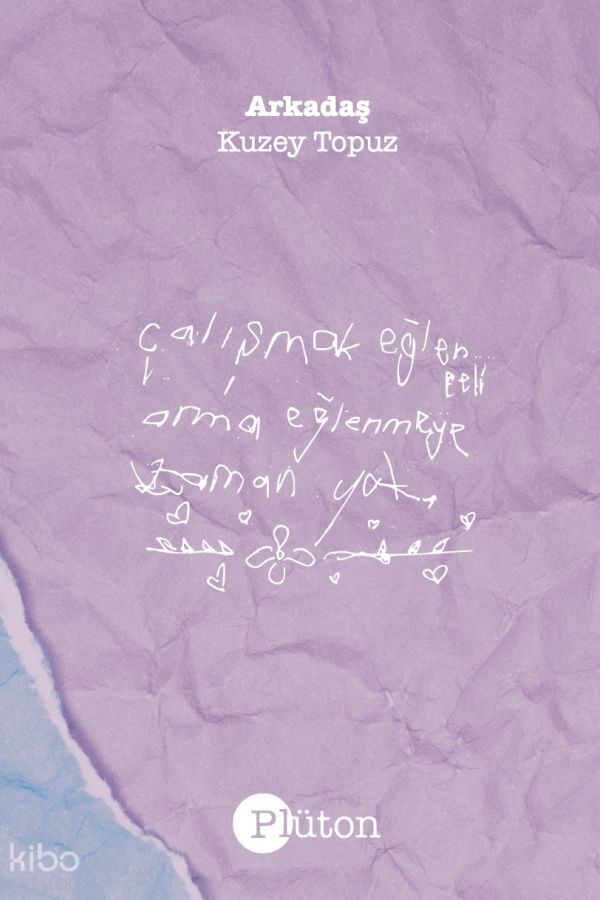 Arkadaş
Kuzey Topuz
çalışmak eğlen
celi
anma eğlenmeye
zaman yok
Plüton
kibo